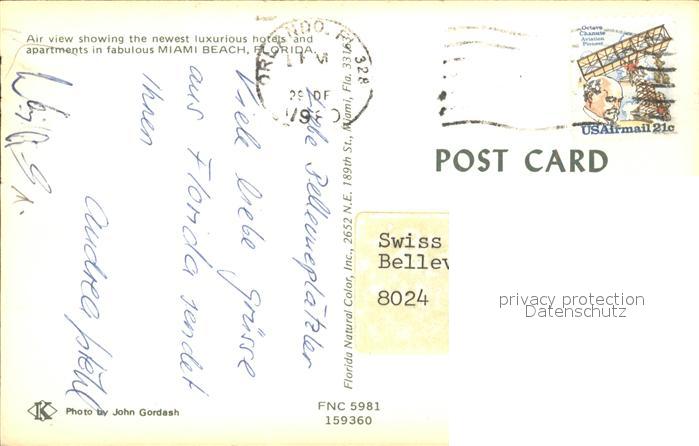 Air view showing the newest luxurious hotels and
apartments in fabulous MIAMI BEACH, FLORIDA.
ORLANDO, 328
PM
29 DE
1980
Octave
Chanute
Aviation
Pioneer
USAirmail 21c
POST CARD
Liebe Bellevueplätzler
Viele liebe Grüsse
aus Florida sendet
Ihnen
Andrea
Florida Natural Color, Inc., 2652 N.E. 189th St., Miami, Fla. 331
Swiss
Bellev
8024
privacy protection
Datenschutz
K
Photo by John Gordash
FNC 5981
159360